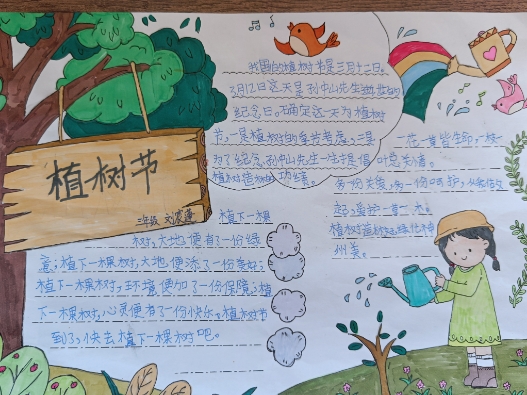 植树节
三年级
我国的植树节是三月十二日。
3月12日这天是孙中山先生逝世的
纪念日。确定这天为植树
节,一是植树的季节考虑,二是
为了纪念孙中山先生一生提倡
植树造林的功绩。
植下一棵
树,大地便有了一份绿
意;植下一棵树,大地便添了一份美好;
植下一棵树,环境便加了一份保障;植
下一棵树,心灵便有了一份快乐。植树节
到了,快去植下一棵树吧。
一花一草皆生命,一枝
一叶总关情。
多一份关爱,多一份呵护,
爱护一草一木。
植树造林,绿化神
州美。